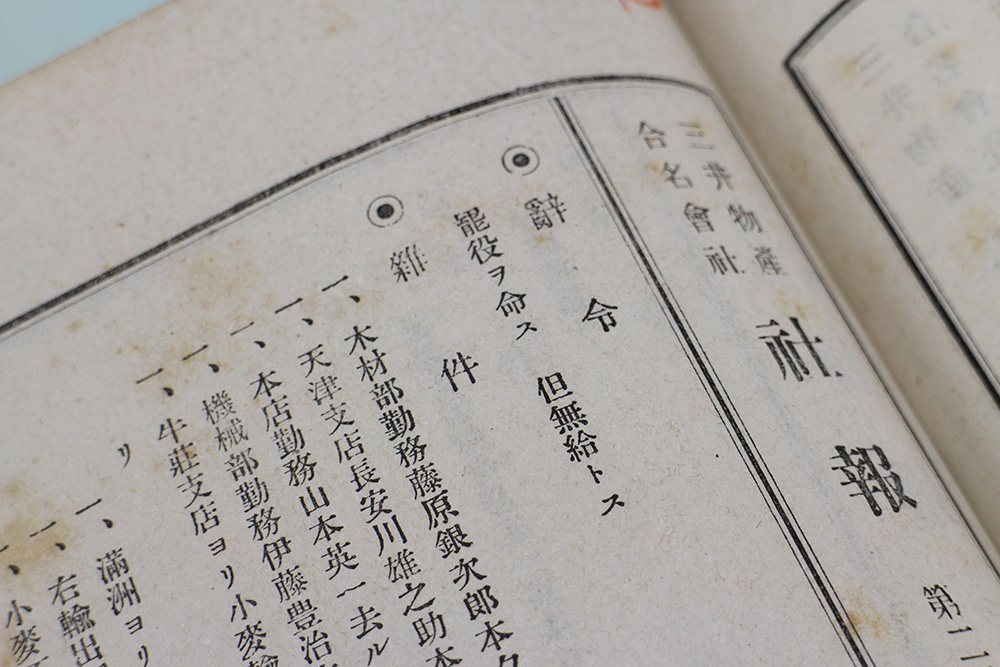 三井物產
合名會社
社報
第二
◉辭令
罷役ヲ命ス 但無給トス
◉雜件
一、木材部勤務藤原銀次郎本
一、天津支店長安川雄之助本
一、本店勤務山本英一去ル
一、機械部勤務伊藤豊治
一、牛莊支店ヨリ小麥輸
リ
一、滿洲ヨリ
一、右輸出
一、小麥